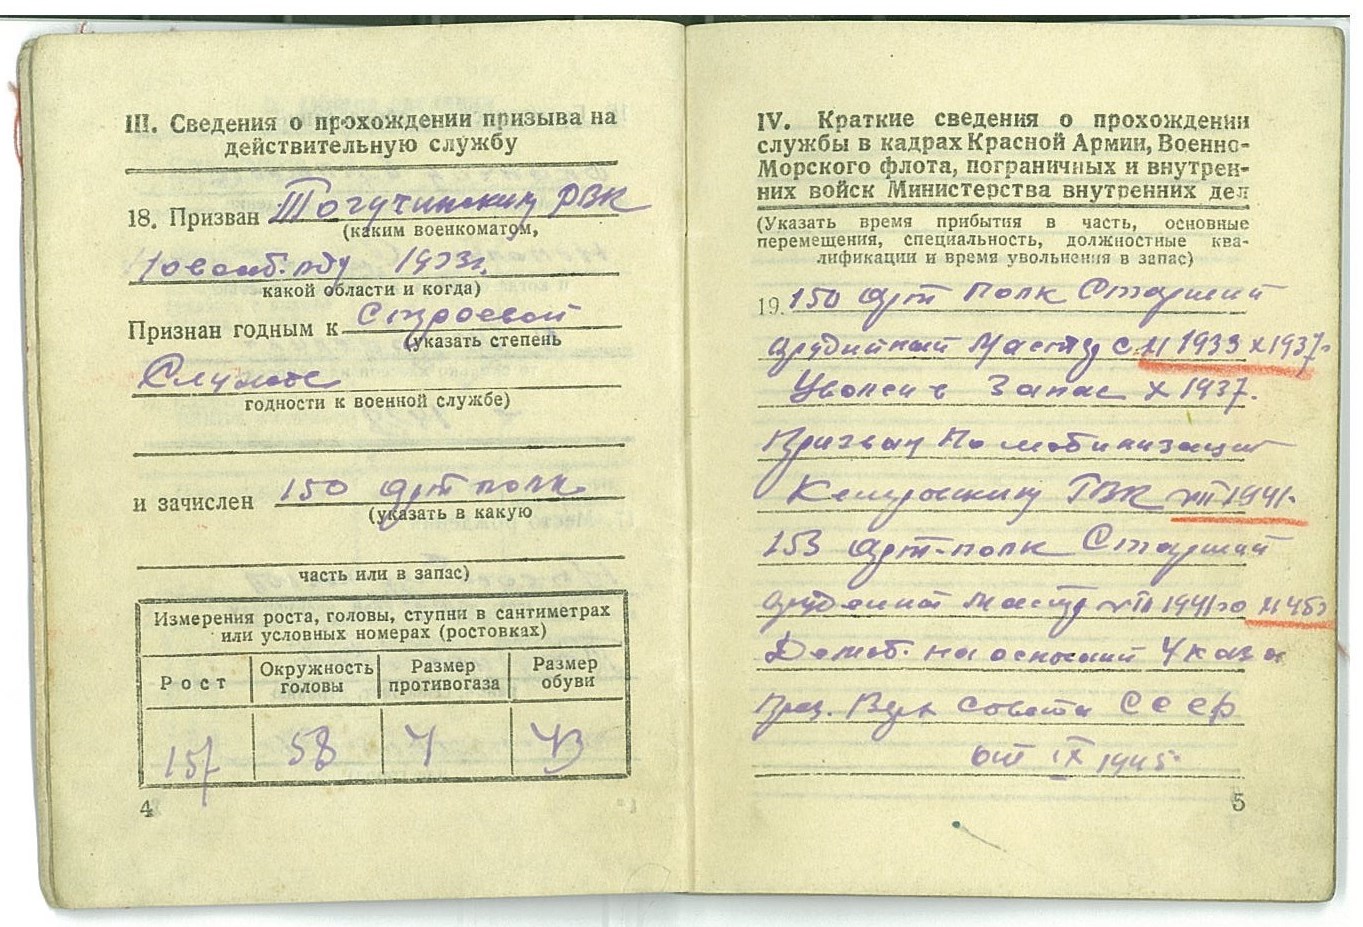 III. Сведения о прохождении призыва на
действительную службу
18. Призван Тогучинским РВК
(каким военкоматом,
Новосиб. обл. 1933г.
какой области и когда)
Признан годным к Строевой
(указать степень
Службе
годности к военной службе)
и зачислен 150 арт полк
(указать в какую
часть или в запас)
Измерения роста, головы, ступни в сантиметрах
или условных номерах (ростовках)
Рост
Окружность
головы
Размер
противогаза
Размер
обуви
157 58 4 43
4
IV. Краткие сведения о прохождении
службы в кадрах Красной Армии, Военно-
Морского флота, пограничных и внутрен-
них войск Министерства внутренних дел
(Указать время прибытия в часть, основные
перемещения, специальность, должностные ква-
лификации и время увольнения в запас)
19. 150 арт полк Старший
орудийный Мастер с 1933 X 1937
Уволен в Запас X 1937.
Призван По мобилизации
ГВК VIII 1941.
153 арт-полк Старший
Мастер VIII 1941
Демоб. на основании Указа
През. Верх Совета СССР
от IX 1945
5